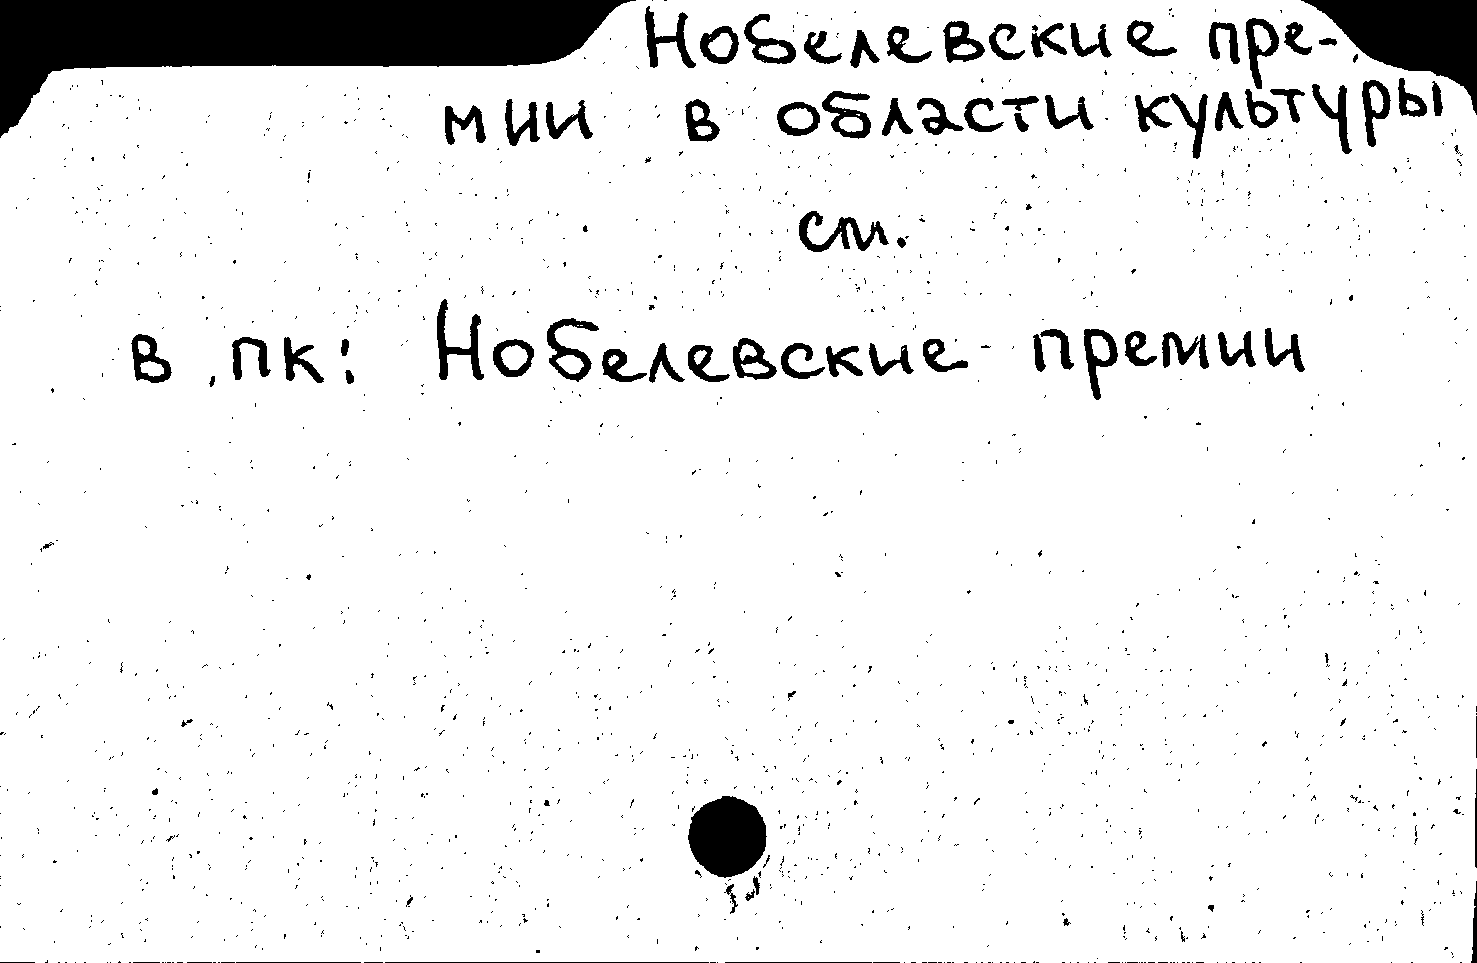 Нобелевские пре-
мии в области культуры
см.
в пк: Нобелевские премии